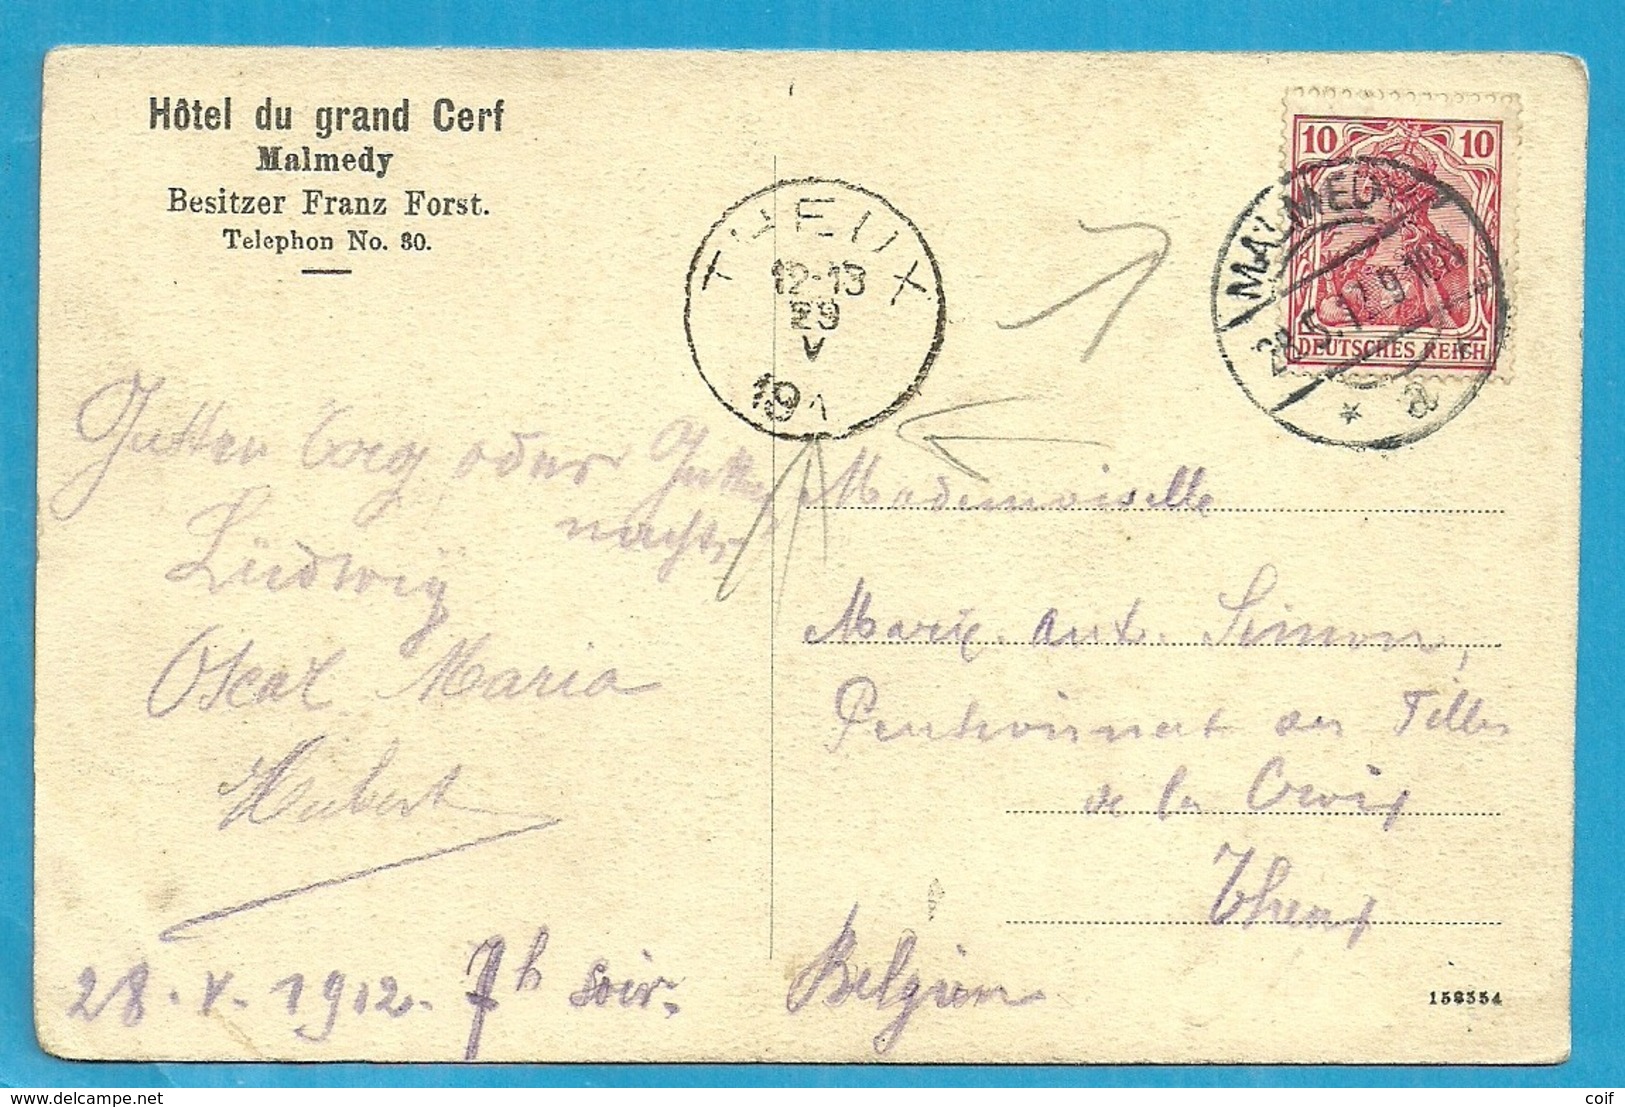 Hôtel du grand Cerf
Malmedy
Besitzer Franz Forst.
Telephon No. 30.
THEUX
12-13
29
V
191
10 10
DEUTSCHES REICH
MALMEDY
28.5.12. 9-10N
* a
Gutten oder Gutten
nacht,
Lüdwig
Oscar Maria
Hubert
28. V. 1912. 7h soir.
Mademoiselle
Marie. Ant. Simon,
Pensionnat des Filles
de la Croix
Theux
Belgien
158354
coif